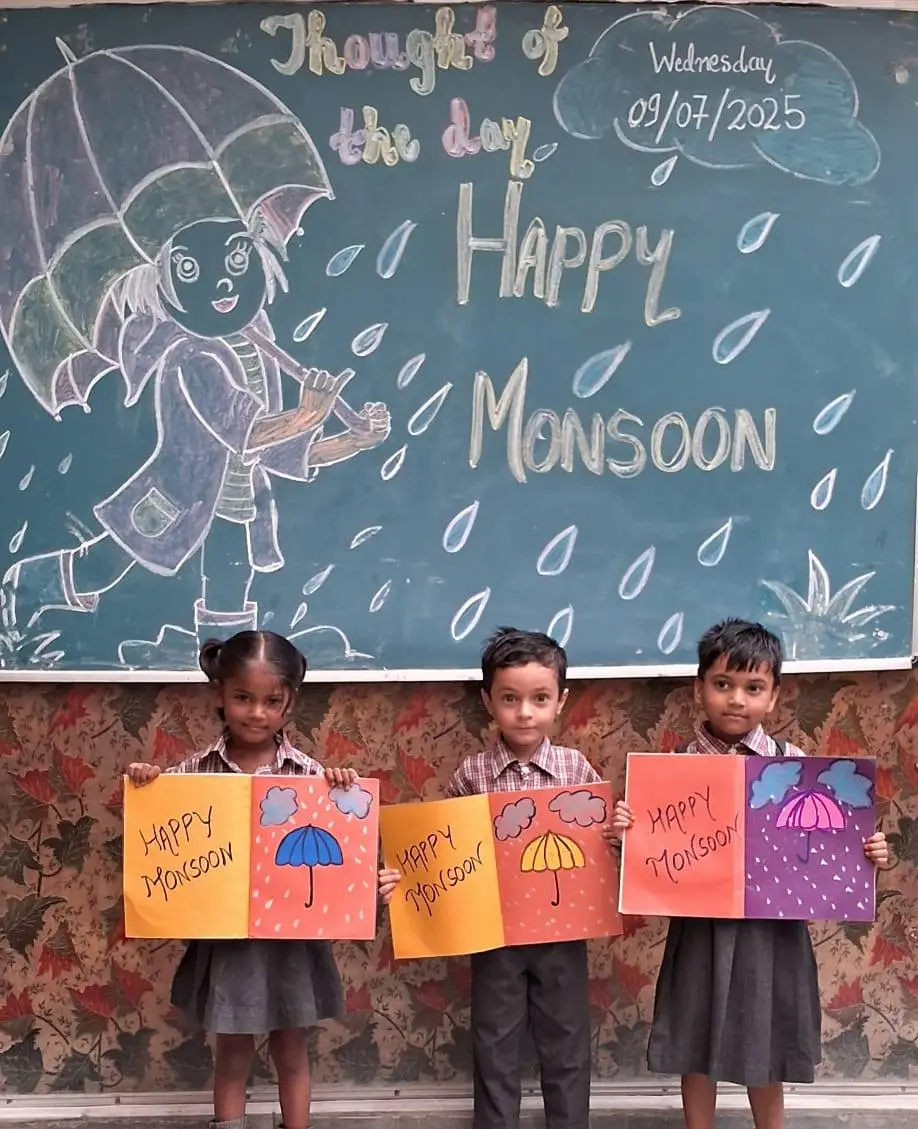 Thought of
the day
Wednesday
09/07/2025
HAPPY
MONSOON
HAPPY
MONSOON
HAPPY
MONSOON
HAPPY
MONSOON